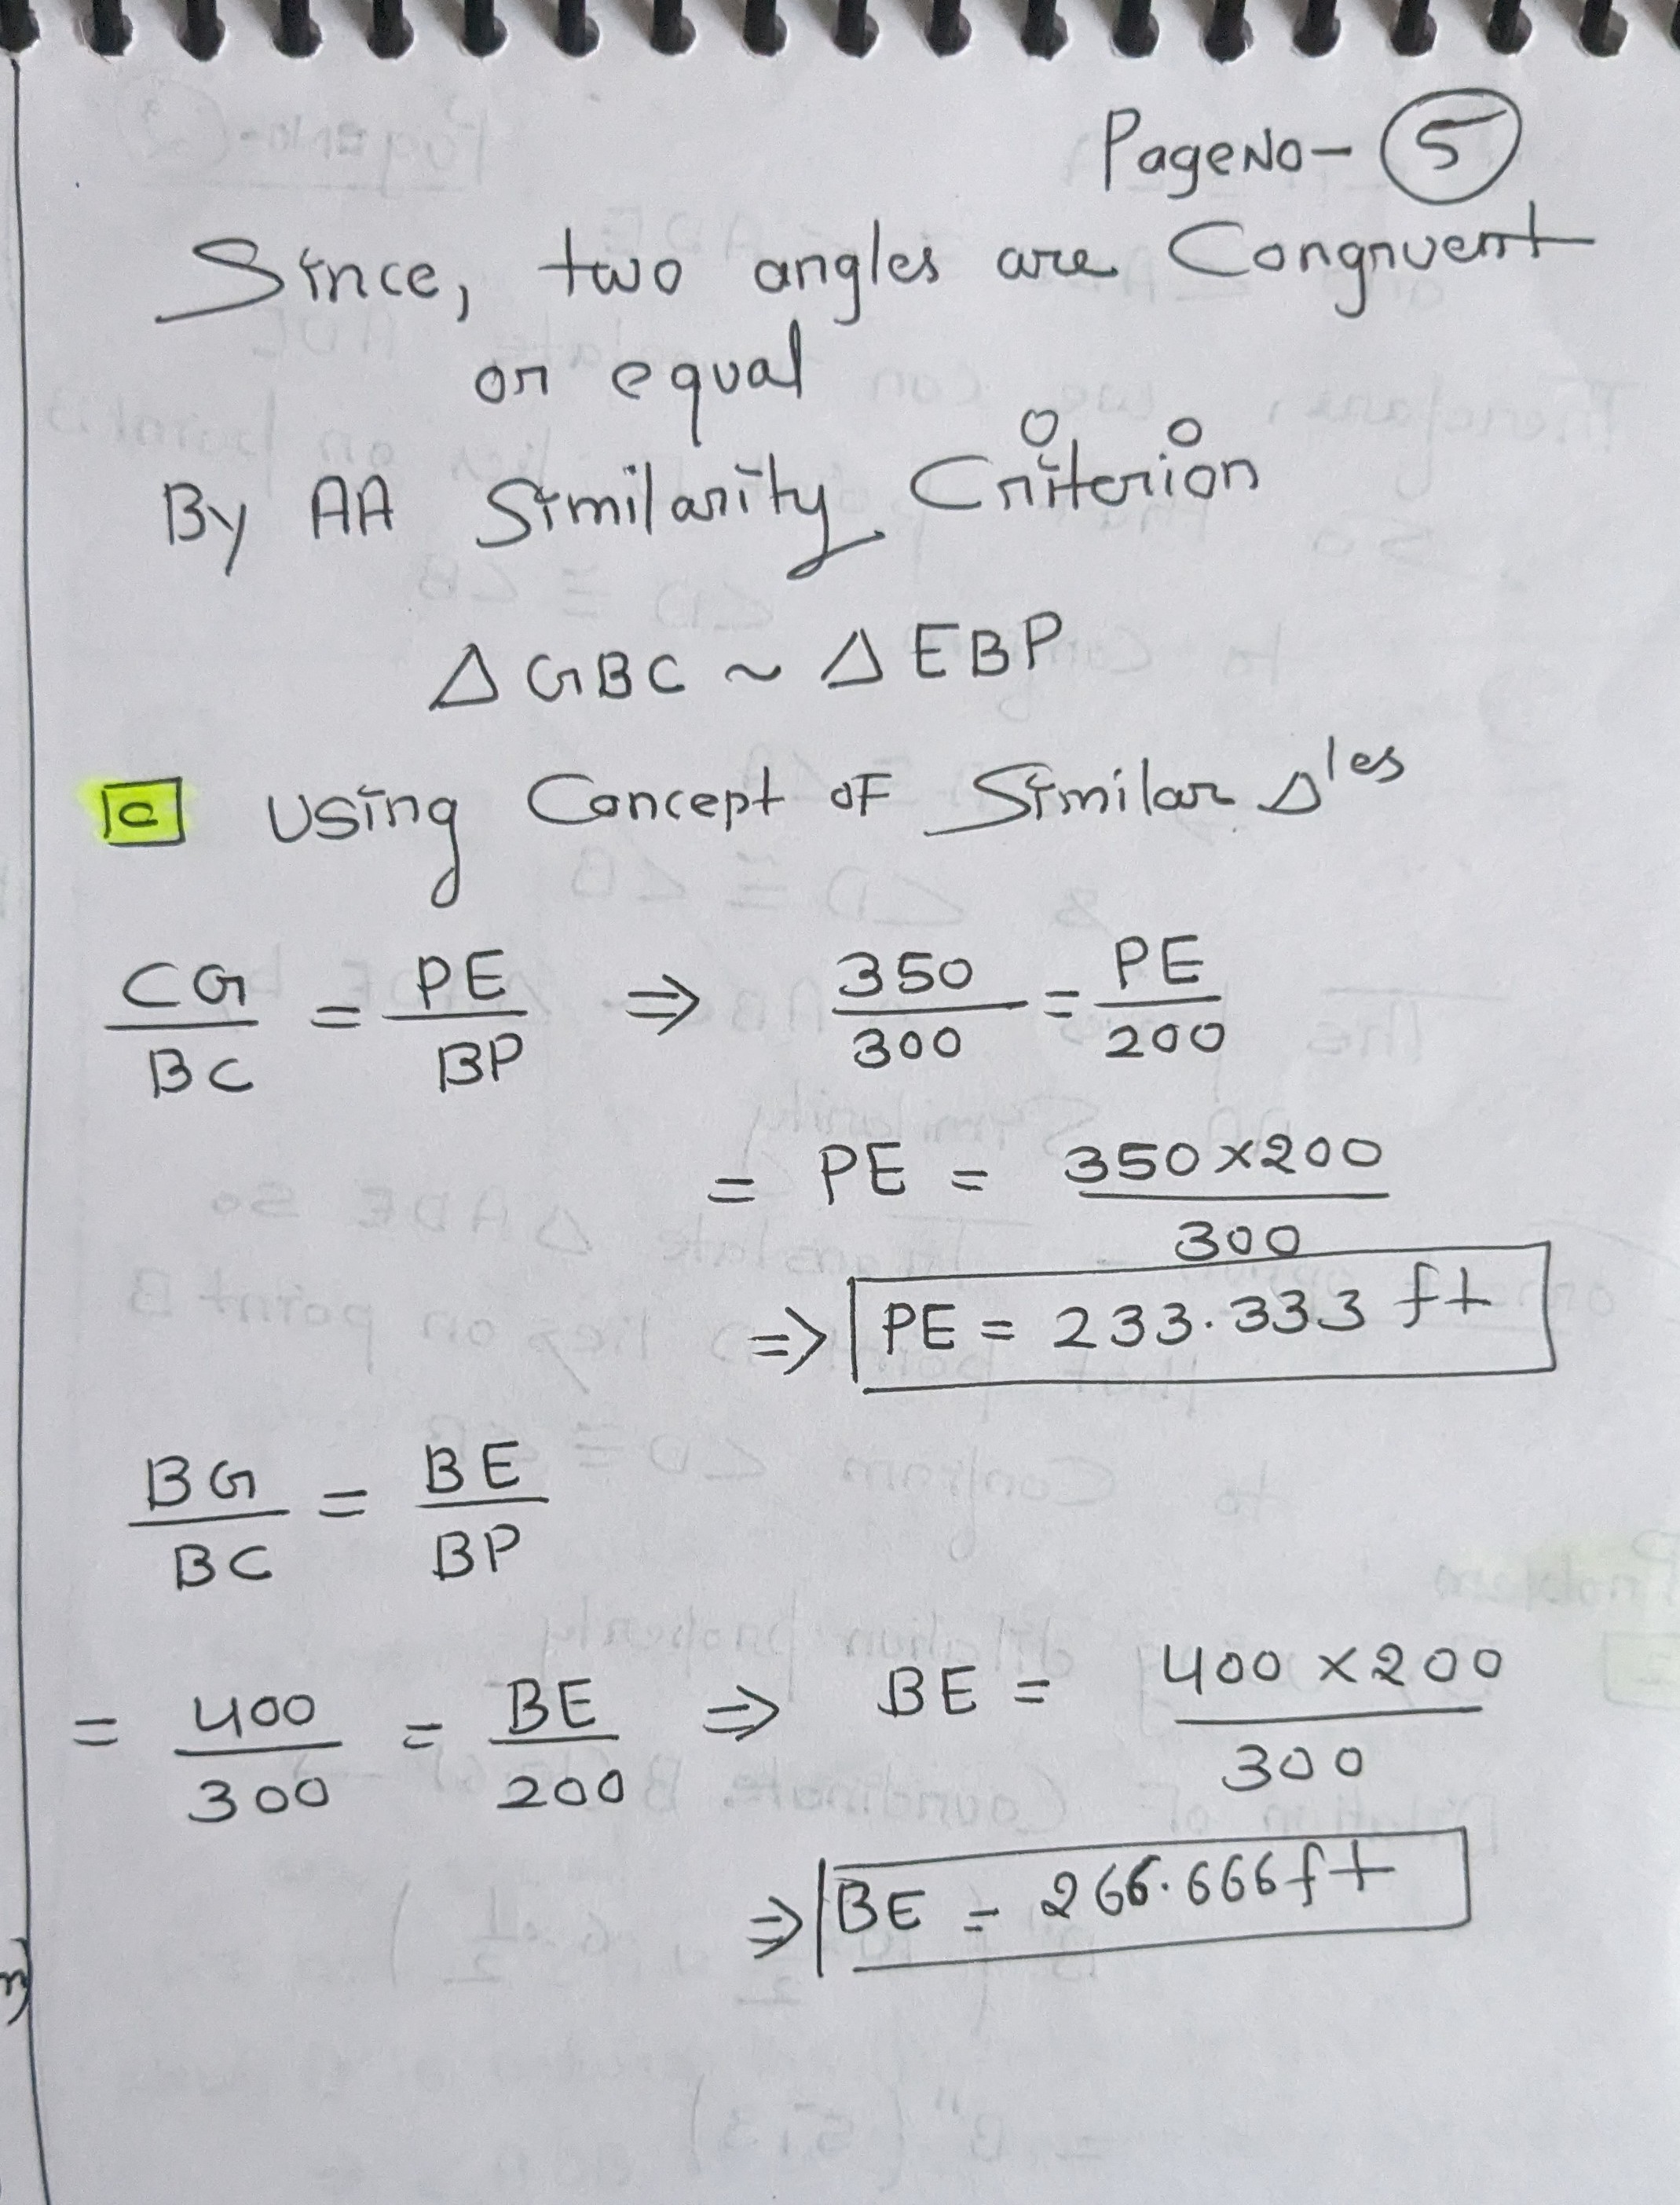 Page No- 5
Since, two angles are Congruent
or equal
By AA Similarity Criterion
△ GBC ~ △ EBP
C Using Concept of Similar △les
CG/BC = PE/BP ⇒ 350/300 = PE/200
= PE = 350×200/300
⇒ PE = 233.333 ft
BG/BC = BE/BP
= 400/300 = BE/200 ⇒ BE = 400×200/300
⇒ BE = 266.666 ft